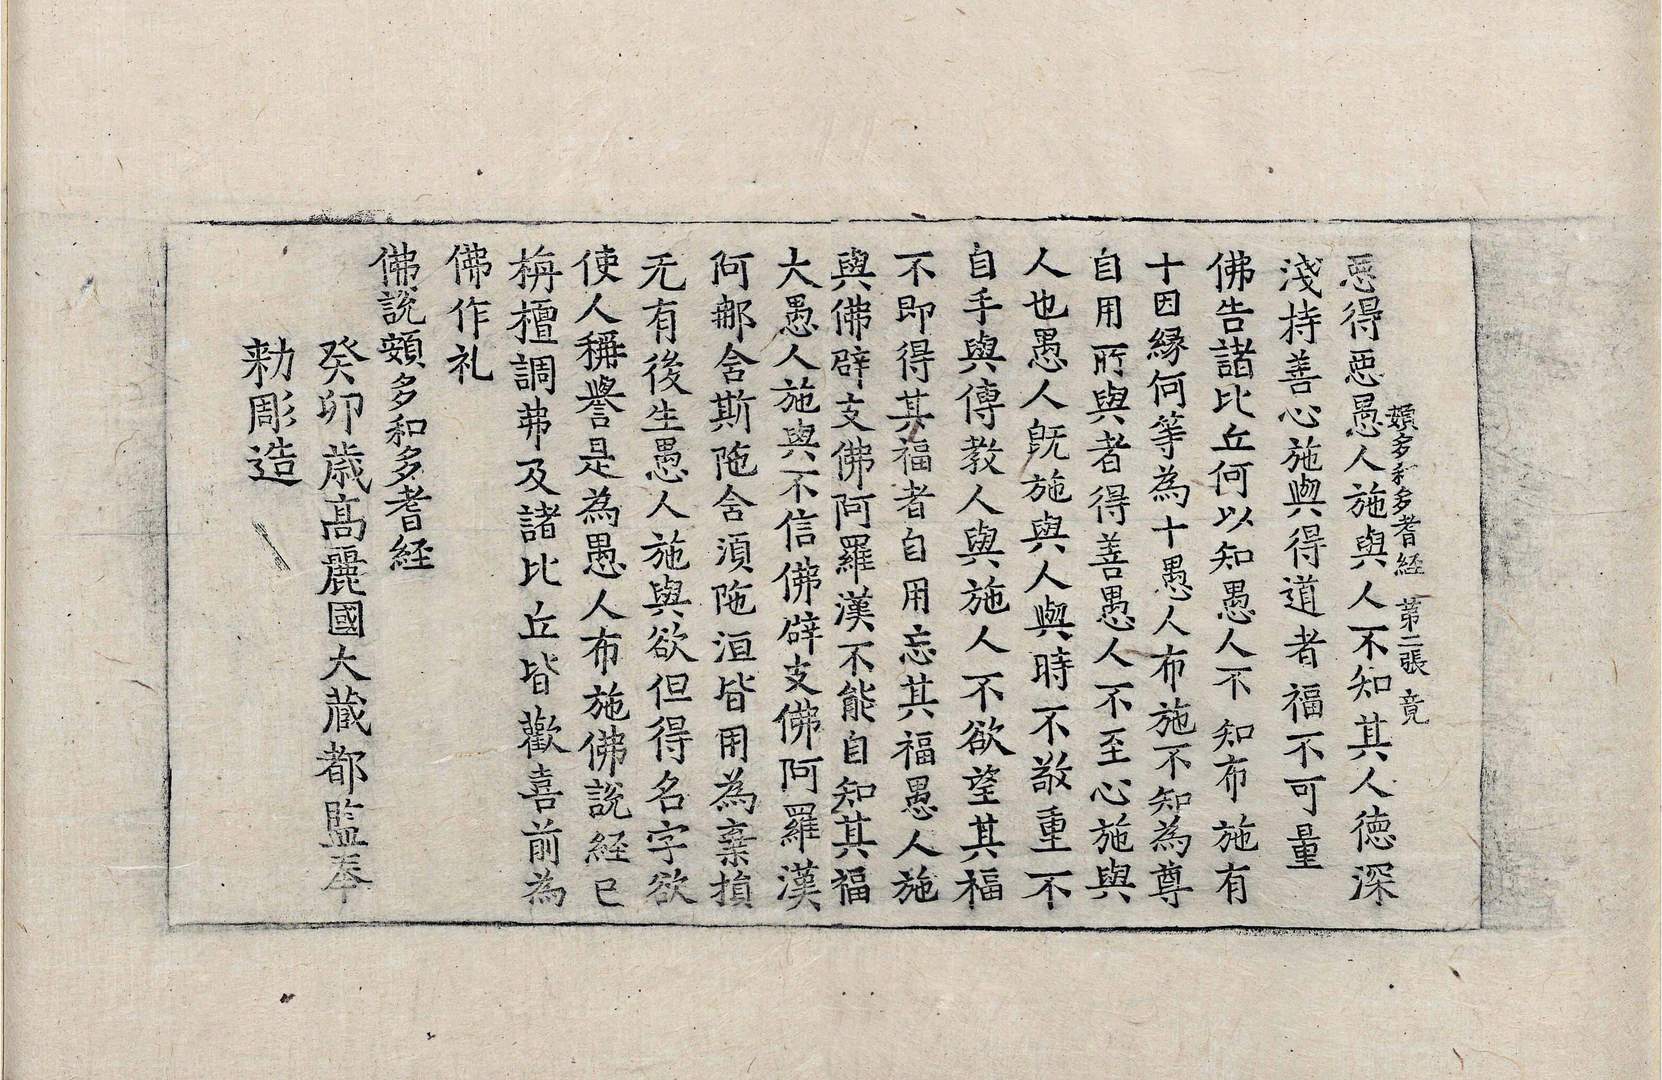 頞多和多耆経 第二張 竟
惡得惡愚人施與人不知其人德深
淺持善心施與得道者福不可量
佛告諸比丘何以知愚人不知布施有
十因緣何等為十愚人布施不知為尊
自用所與者得善愚人不至心施與
人也愚人旣施與人與時不敬重不
自手與傳教人與施人不欲望其福
不即得其福者自用忘其福愚人施
與佛辟支佛阿羅漢不能自知其福
大愚人施與不信佛辟支佛阿羅漢
阿那含斯陁含湏陁洹皆用為棄損
无有後生愚人施與欲但得名字欲
使人稱譽是為愚人布施佛說経已
栴檀調弗及諸比丘皆歡喜前為
佛作礼
佛說頞多和多耆経
癸卯歲高麗國大蔵都監奉
勅彫造